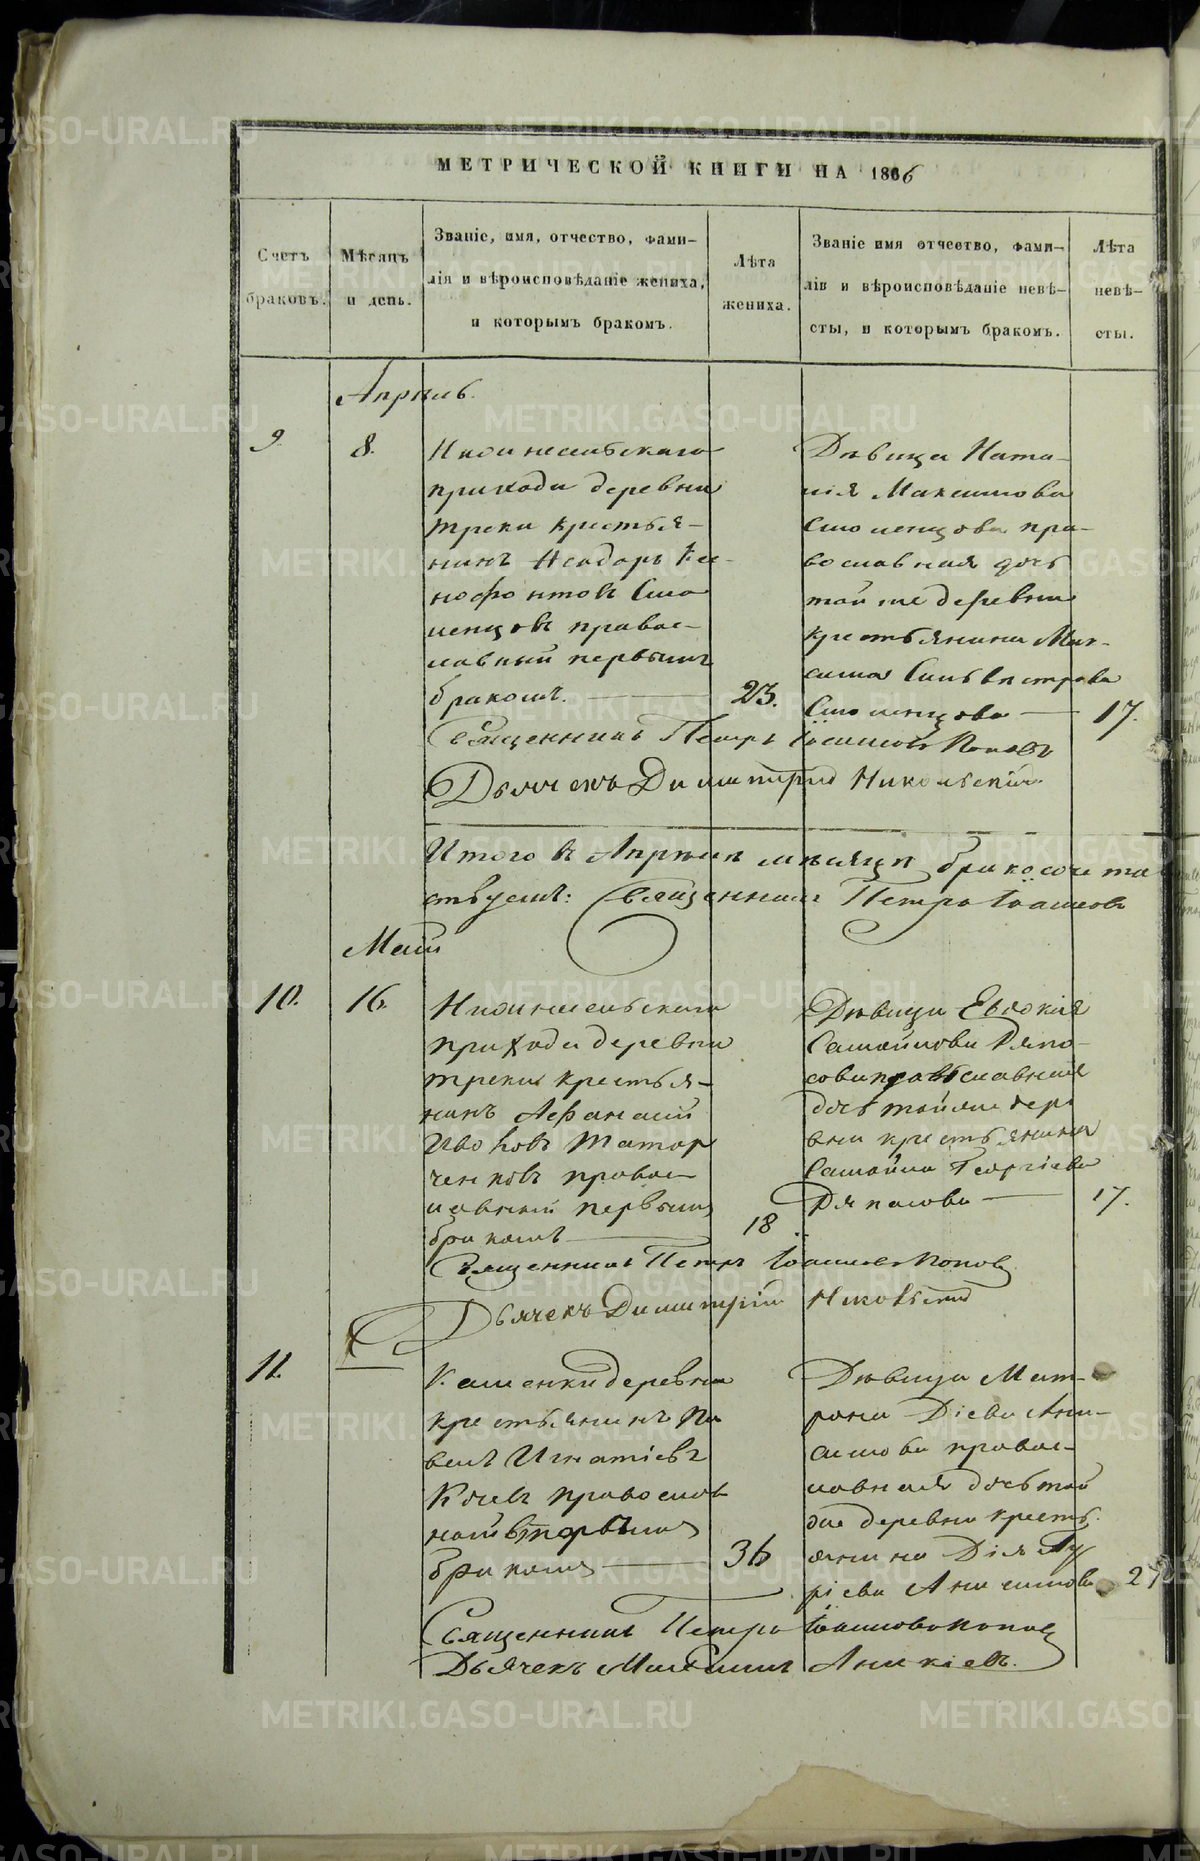 МЕТРИЧЕСКОЙ КНИГИ НА 1866
Счетъ
браковъ.
Мѣсяцъ
и день.
Званіе, имя, отчество, фами-
лія и вѣроисповѣданіе жениха,
и которымъ бракомъ.
Лѣта
жениха.
Званіе имя отчество, фами-
лія и вѣроисповѣданіе невѣ-
сты, и которымъ бракомъ.
Лѣта
невѣ-
сты.
Апрѣль.
9.
8.
прихода деревни
Треки крестья-
нинъ Исидоръ Ксе-
нофонтовъ Смо
ленцовъ правос-
лавный первымъ
бракомъ.
23.
Дѣвица Ната-
лія Максимова
Смоленцова пра-
вославная дочь
той же деревни
крестьянина Мак-
сима Сильвестрова
Смоленцова
17.
Священникъ Петръ Іоанновъ Поповъ
Дьячекъ Димитрій Никольскій
Итого въ Апрѣлѣ мѣсяцѣ бракосочета
Священникъ Петръ Іоанновъ
Май
10.
16.
прихода деревни
Треки крестья-
нинъ Афанасій
ченковъ правос-
лавный первымъ
бракомъ
18
Дѣвица Евдокія
Самойлова Ряпо-
сова православная
дочь той же дере
вни крестьянина
Самойла Георгіева
Ряпосова
17.
Священникъ Петръ Іоанновъ Поповъ
Дьячекъ Димитрій Никольскій
11.
Каменки деревни
крестьянинъ Па
велъ Игнатіевъ
православ
бракомъ
36
Дѣвица Мат-
рона Діева Ани-
симова правос-
лавная дочь той
же деревни кресть
янина Дія Гу
ріева Анисимова
Священникъ Петръ Іоанновъ Поповъ
Дьячекъ Максимъ Аникіевъ.
METRIKI.GASO-URAL.RU